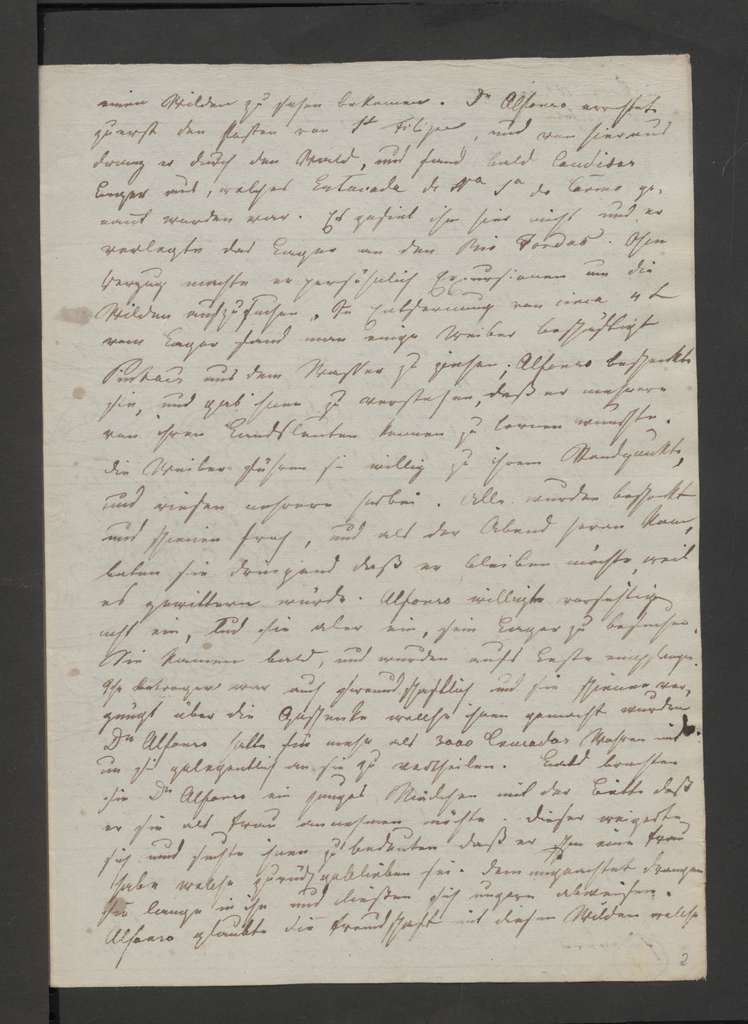 einen Wilden zu sehen bekamen. Dn Alfonso errichtete
zuerst den Posten von St Filipe, und von hier aus
drang er durch den Wald, und fand bald Candidos
Lager auf, welches Entrada de Na Sa do Carmo ge-
nant worden war. Es gefiel ihm hier nicht und er
verlegte das Lager an den Rio Jordaõ. Ohne
Verzug machte er persöhnlich Excursionen um die
Wilden aufzusuchen. In Entfernung von circa 4 L
vom Lager fand man einige Weiber beschäftigt
aus dem Wasser zu ziehen. Alfonso beschenkte
sie, und gab ihnen zu verstehen, daß er mehrere
von ihren Landsleuten kennen zu lernen wünschte.
die Weiber führen sie willig zu ihrem Standpunkte,
und riefen mehrere herbei. Alle wurden beschenkt
und schienen froh, und als der Abend heran kam,
baten sie dringend daß er bleiben möchte, weil
es gewittern würde. Alfonso willigte vorsichtig
nicht ein, lud sie aber ein, sein Lager zu besuchen.
Sie kamen bald, und wurden aufs beste empfangen.
Ihr Betragen war auch freundschaftlich und sie schienen ver-
gnügt über die Geschenke welche ihnen gemacht wurden
Dn Alfonso hatte für mehr als 3000 Cruzados Waaren mit
um sie gelegentlich an sie zu vertheilen. Bald brachten
sie Dn Alfonso ein junges Mädchen mit der Bitte daß
er sie als Frau annehmen möchte. Dieser weigerte
sich und suchte ihnen zu bedeuten daß er schon eine Frau
habe welche zurück geblieben sei. Dem ungeachtet drangen
sie lange in ihn und ließen sich ungern abweisen.
Alfonso glaubte die Freundschaft mit diesen Wilden welche
2